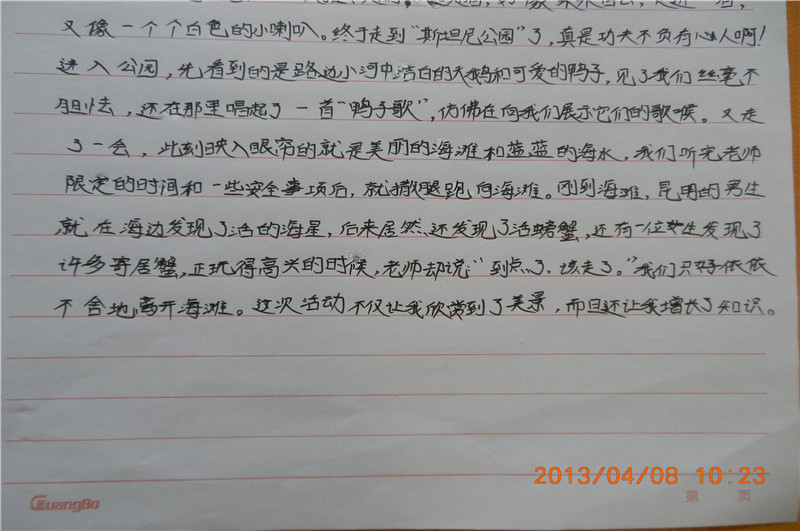 又像一个个白色的小喇叭。终于走到“斯坦尼公园”了，真是功夫不负有心人啊！
进入公园，先看到的是路边小河中洁白的天鹅和可爱的鸭子，见了我们丝毫不
胆怯，还在那里唱起了一首“鸭子歌”，仿佛在向我们展示它们的歌喉。又走
了一会，此刻映入眼帘的就是美丽的海滩和蓝蓝的海水，我们听完老师
限定的时间和一些安全事项后，就撒腿跑向海滩。刚到海滩，昆明的男生
就在海边发现了活的海星，后来居然还发现了活螃蟹，还有一位女生发现了
许多寄居蟹，正玩得高兴的时候，老师却说：“到点了，该走了。”我们只好依依
不舍地离开海滩。这次活动不仅让我欣赏到了美景，而且还让我增长了知识。
2013/04/08 10:23
GuangBo
第 页